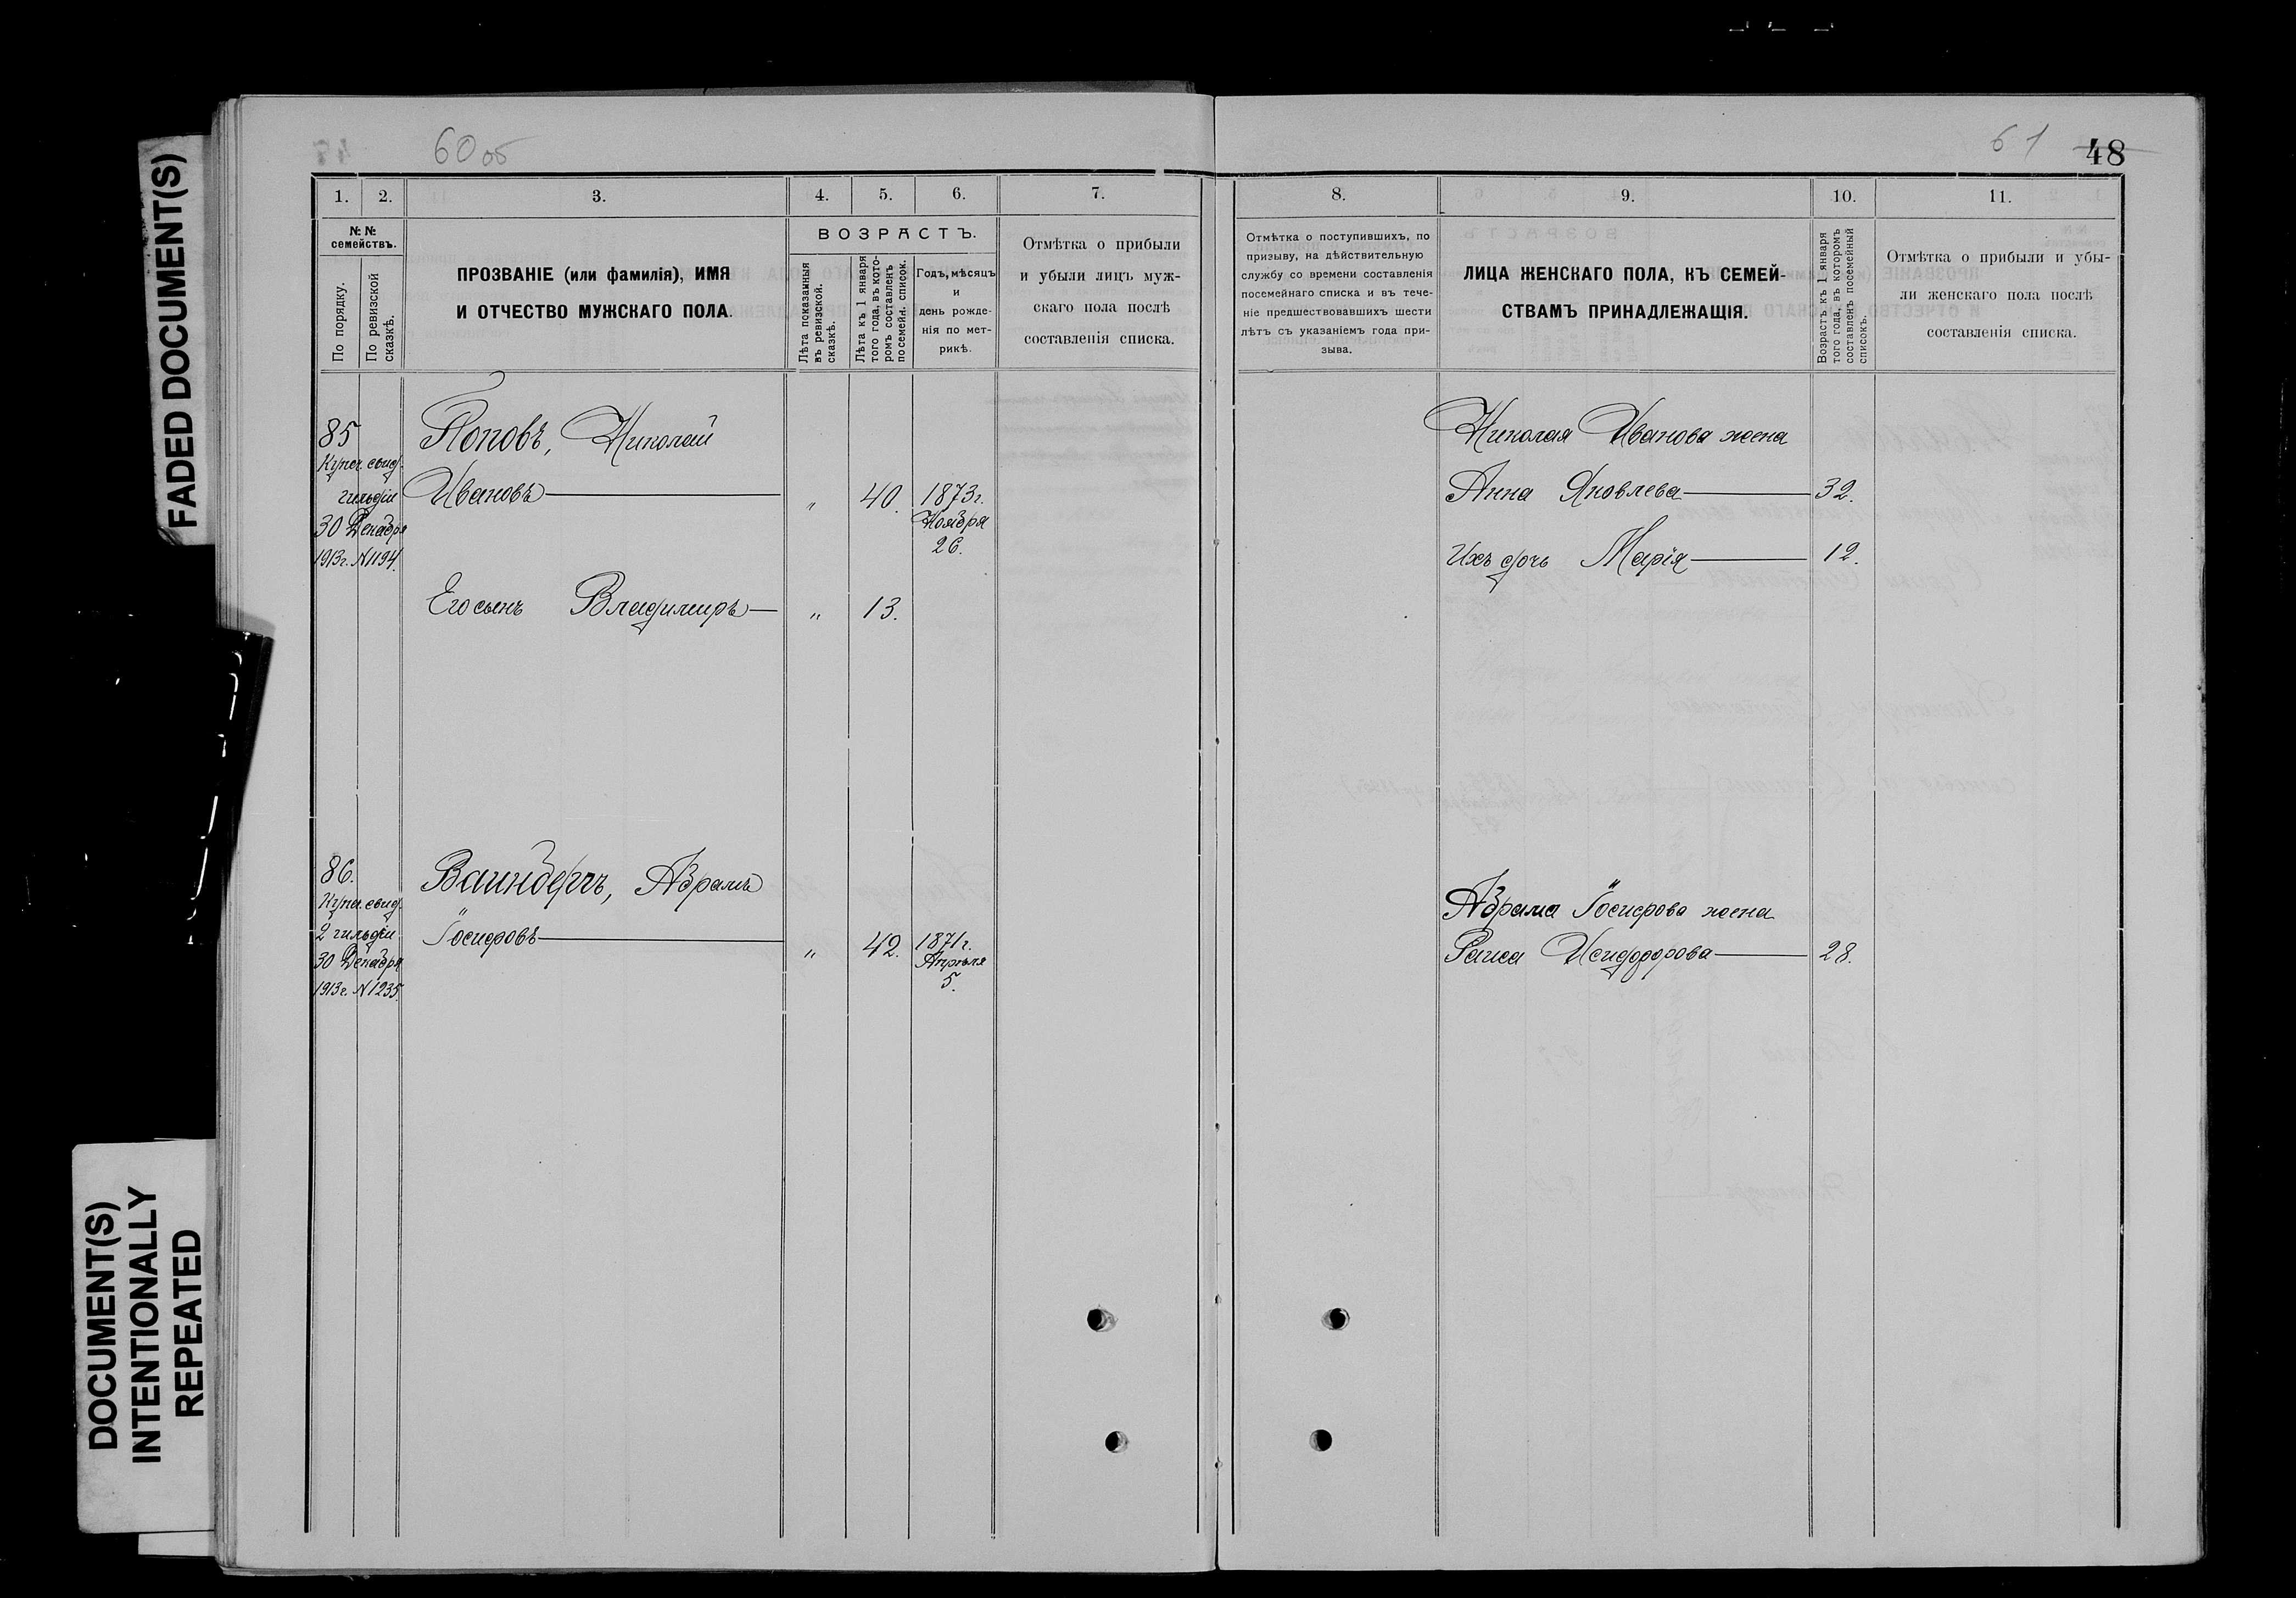 FADED DOCUMENT(S)
DOCUMENT(S)
INTENTIONALLY
REPEATED
60 об
1. 2. 3. 4. 5. 6. 7.
№ №
семействъ.
По порядку.
По ревизской
сказкѣ.
ПРОЗВАНІЕ (или фамилія), ИМЯ
И ОТЧЕСТВО МУЖСКАГО ПОЛА.
ВОЗРАСТЪ.
Лѣта показанныя
въ ревизской.
сказкѣ.
Лѣта къ 1 января
того года, въ кото-
ромъ составленъ
посемейн. список.
Годъ, мѣсяцъ
и
день рожде-
нія по мет-
рикѣ.
Отмѣтка о прибыли
и убыли лицъ муж-
скаго пола послѣ
составленія списка.
85
Купеч. свид.
гильдіи
30 Декабря
1913 г. N 1194.
Поповъ, Николай
Ивановъ " 40. 1873 г.
Ноября
26.
Его сынъ Владиміръ " 13.
86.
Купеч. свид.
2 гильдіи
30 Декабря
1913 г. N 1235.
Ваинбергъ, Абрамъ
Іосифовъ " 42. 1871 г.
Апрѣля
5.
61 48
8. 9. 10. 11.
Отмѣтка о поступившихъ, по
призыву, на дѣйствительную
службу со времени составленія
посемейнаго списка и въ тече-
ніе предшествовавшихъ шести
лѣтъ съ указаніемъ года при-
зыва.
ЛИЦА ЖЕНСКАГО ПОЛА, КЪ СЕМЕЙ-
СТВАМЪ ПРИНАДЛЕЖАЩІЯ.
Возрастъ къ 1 января
того года, въ которомъ
составленъ посемейный
списокъ.
Отмѣтка о прибыли и убы-
ли женскаго пола послѣ
составленія списка.
Николая Иванова жена
Анна Яковлева 32.
Ихъ дочь Марія 12.
Абрама Іосифова жена
Раиса Исидорова 28.